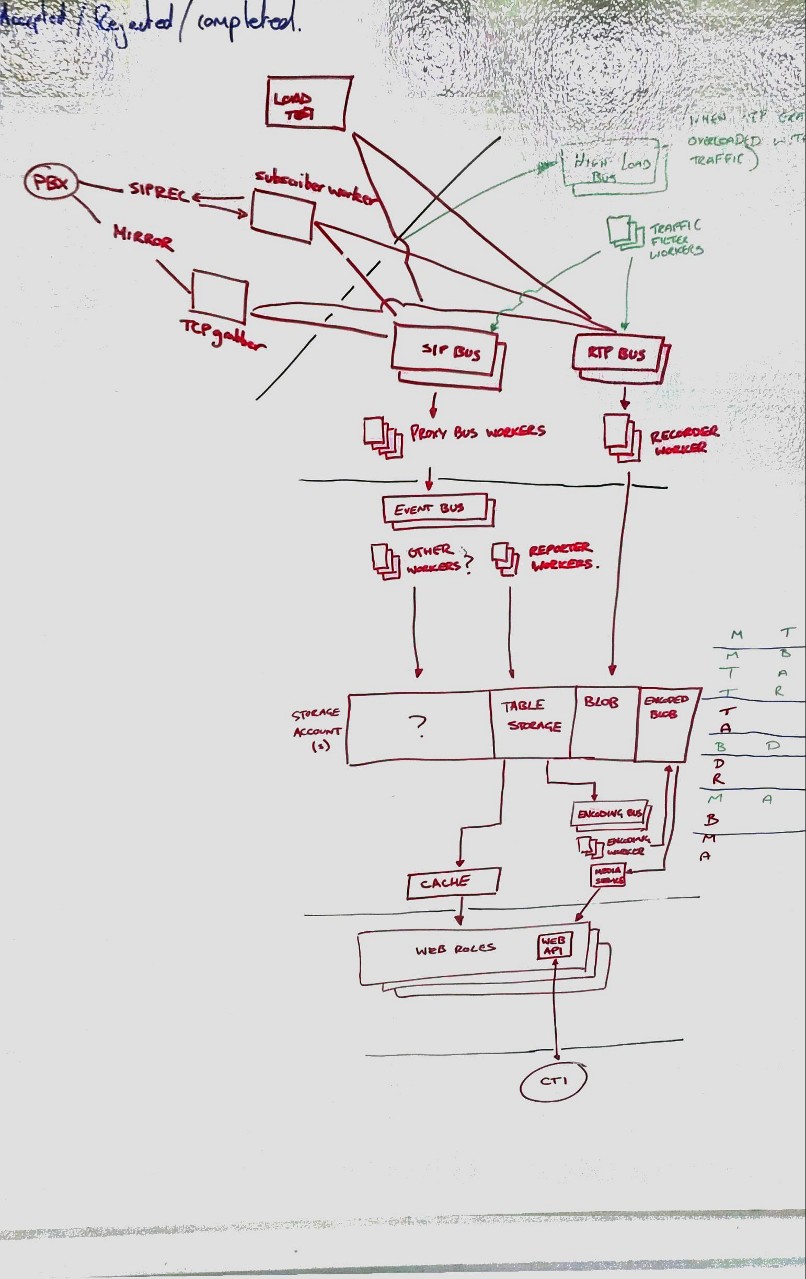 Accepted / Rejected / completed.
LOAD
TEST
WHEN
OVERLOADED WITH
TRAFFIC)
HIGH LOAD
BUS
PBX
SIPREC
subscriber worker
MIRROR
TRAFFIC
FILTER
WORKERS
TCP gabber
SIP BUS
RTP BUS
PROXY BUS WORKERS
RECORDER
WORKER
EVENT BUS
OTHER
WORKERS?
REPORTER
WORKERS.
M T
M B
T A
I R
T
A
B D
D
R
M A
B
M
A
STORAGE
ACCOUNT
(s)
?
TABLE
STORAGE
BLOB
ENCODED
BLOB
ENCODING BUS
ENCODING
WORKER
MEDIA
CACHE
WEB ROLES
WEB
API
CTI